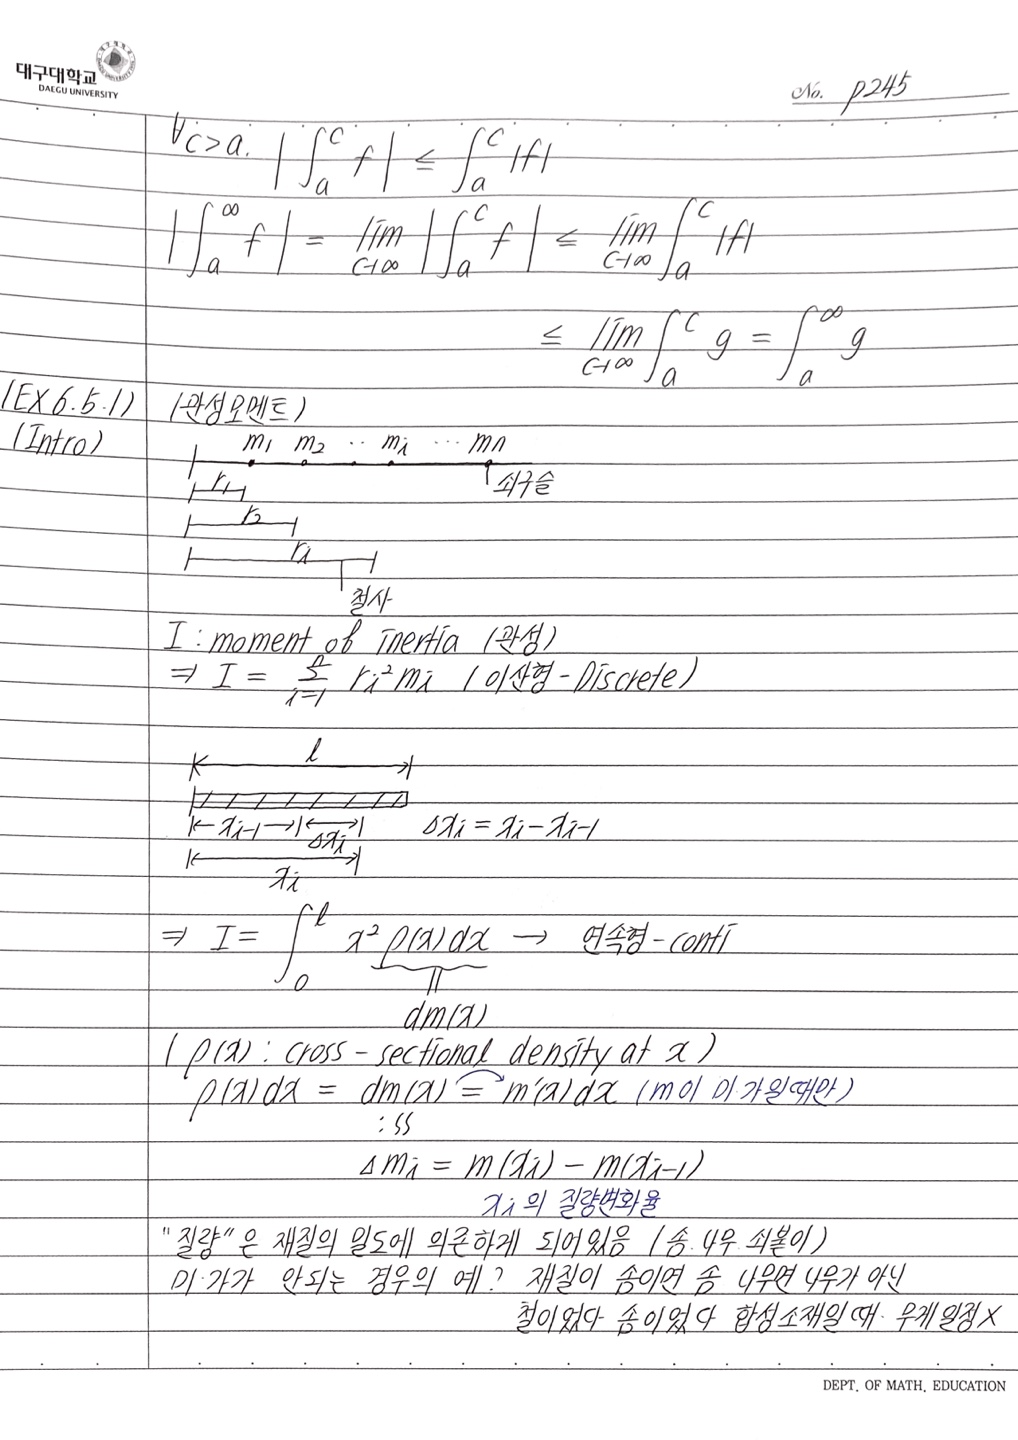 대구대학교
DAEGU UNIVERSITY
No. p245
∀c>a. |∫_a^c f| ≤ ∫_a^c |f|
|∫_a^∞ f| = lim_{c→∞} |∫_a^c f| ≤ lim_{c→∞} ∫_a^c |f|
≤ lim_{c→∞} ∫_a^c g = ∫_a^∞ g
(EX 6.5.1) (관성모멘트)
(Intro)
m1 m2 ·· mi ··· mn
r1 쇠구슬
r2
ri
철사
I : moment of inertia (관성)
⇒ I = Σ_{i=1}^n ri² mi (이산형-Discrete)
l
xi-1 Δxi Δxi = xi - xi-1
xi
⇒ I = ∫_0^l x² ρ(x)dx → 연속형-conti
dm(x)
(ρ(x) : cross-sectional density at x)
ρ(x)dx = dm(x) = m'(x)dx (m이 미·가일때만)
:≀≀
Δmi = m(xi) - m(xi-1)
xi의 질량변화율
"질량"은 재질의 밀도에 의존하게 되어있음 (솜.나무.쇠붙이)
미·가가 안되는 경우의 예? 재질이 솜이면 솜 나무면 나무가 아닌
철이었다 솜이었다 합성소재일때· 무게일정X
DEPT. OF MATH. EDUCATION